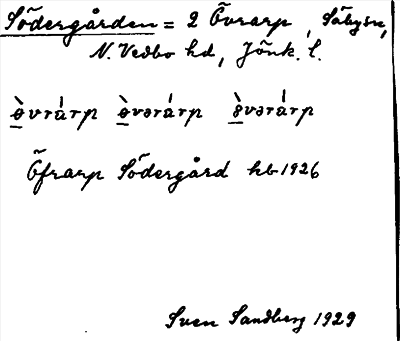 Södergården = 2 Övrarp, Säbysn,
N. Vedbo hd, Jönk. l.
ö̀vrárp ö̀vərárp ö̀vərárp
Öfrarp Södergård hb 1926
Sven Sandberg 1929